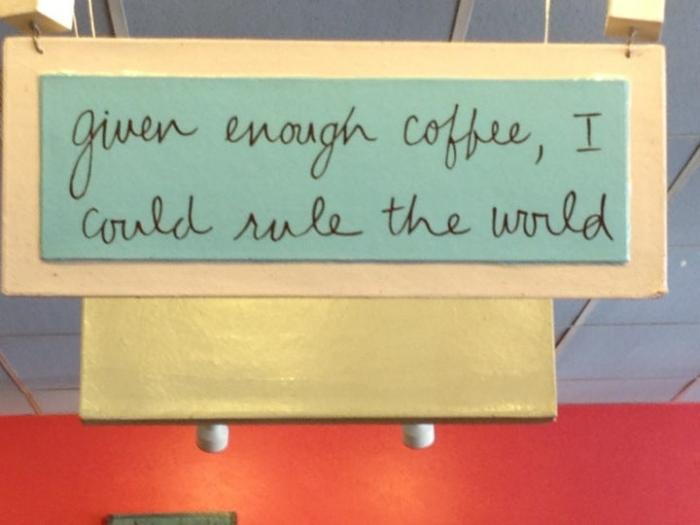 given enough coffee, I
could rule the world